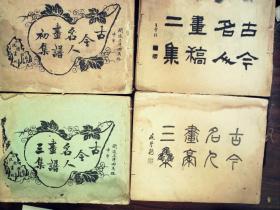 古今
名人
畫譜
初集
古今
名人
畫稿
二集
古今
名人
畫譜
三集
古今
名人
畫稿
三集